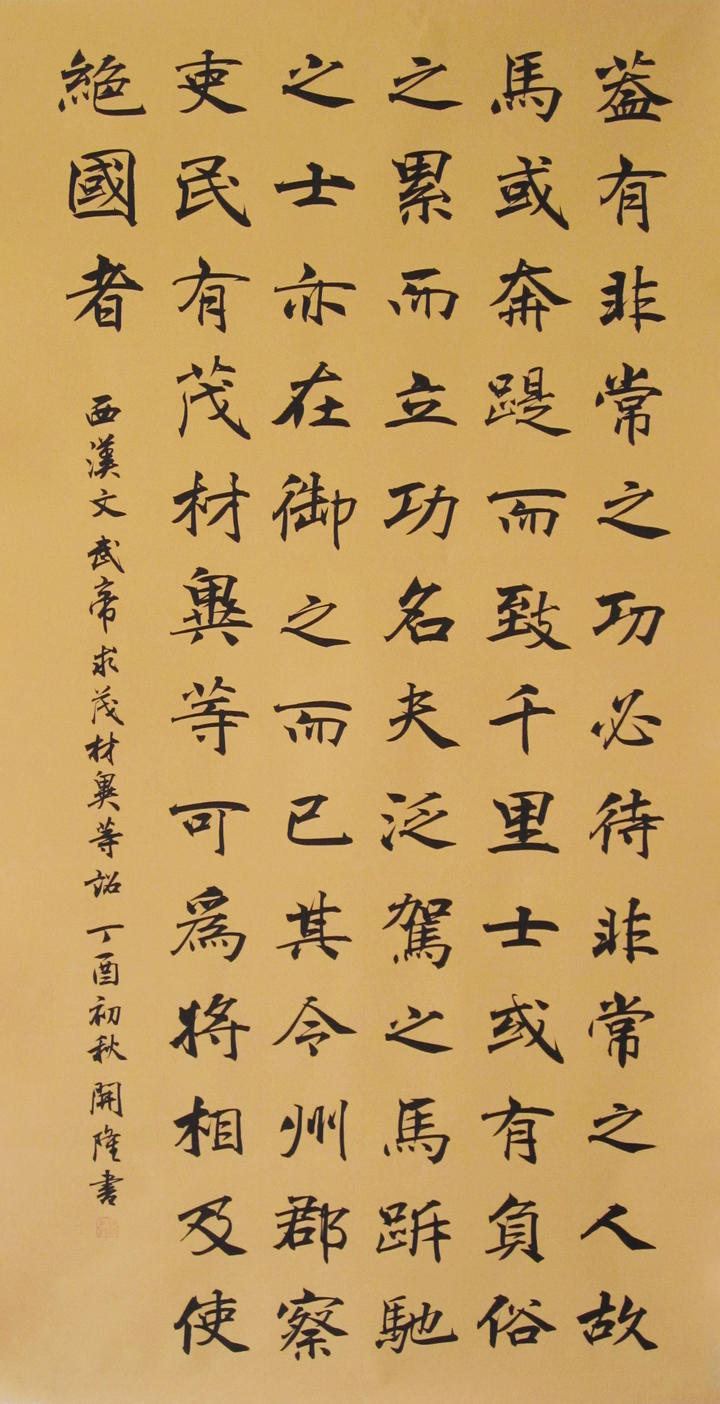 蓋有非常之功必待非常之人故
馬或奔踶而致千里士或有負俗
之累而立功名夫泛駕之馬跅馳
之士亦在御之而已其令州郡察
吏民有茂材異等可為將相及使
絕國者
西漢文武帝求茂材異等詔 丁酉初秋 開隆書